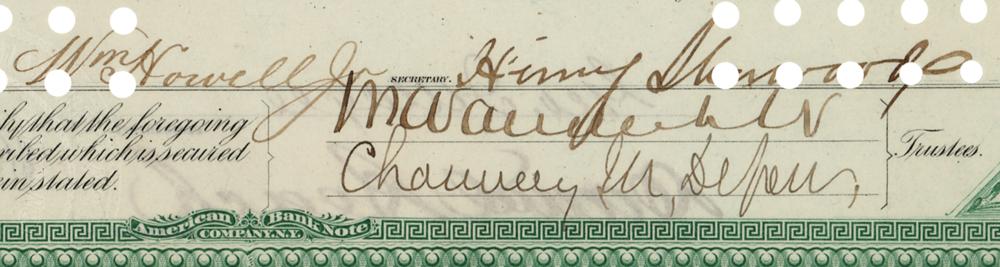 Wm Howell Jr SECRETARY. Henry Sherwood
Wm Vanderbilt
ify that the foregoing
ribed which is, secured
ein stated.
Chauncey M. Depew,
Trustees.
American Bank Note
COMPANY. N.Y.